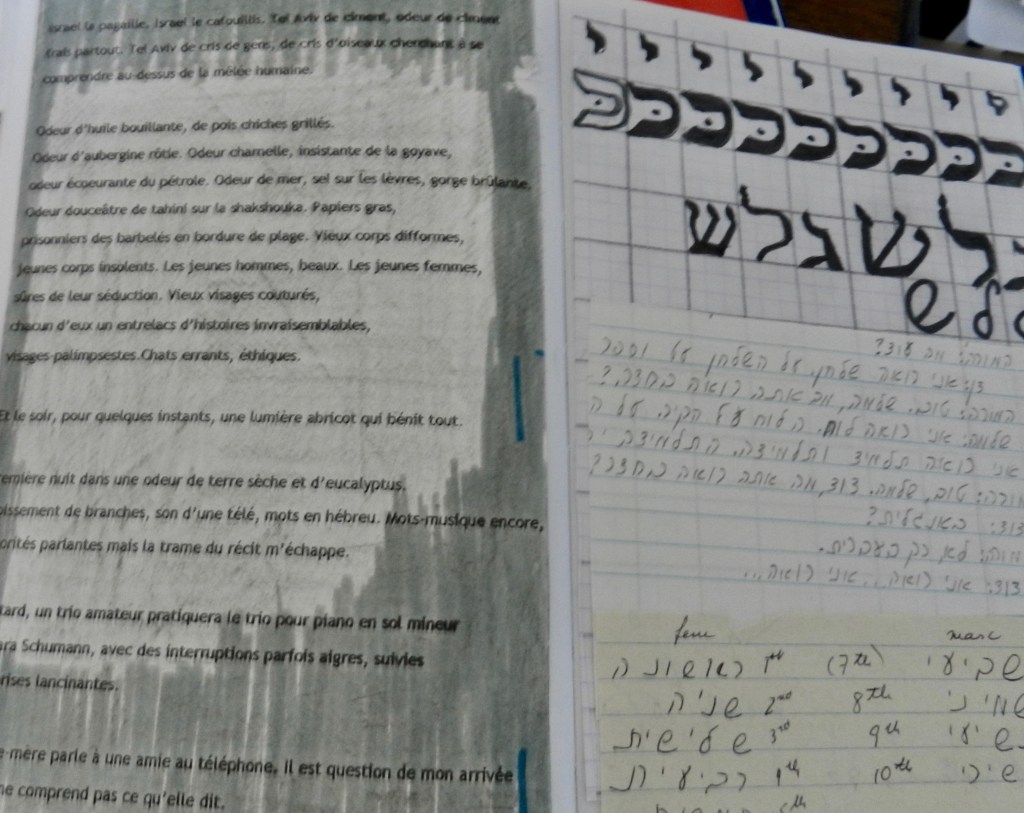 Israel la pagaille, Israel le cafouillis. Tel Aviv de ciment, odeur de ciment
frais partout. Tel Aviv de cris de gens, de cris d'oiseaux cherchant à se
comprendre au-dessus de la mêlée humaine.
Odeur d'huile bouillante, de pois chiches grillés.
Odeur d'aubergine rôtie. Odeur charnelle, insistante de la goyave,
odeur écoeurante du pétrole. Odeur de mer, sel sur les lèvres, gorge brûlante,
Odeur douceâtre de tahini sur la shakshouka. Papiers gras,
prisonniers des barbelés en bordure de plage. Vieux corps difformes,
jeunes corps insolents. Les jeunes hommes, beaux. Les jeunes femmes,
sûres de leur séduction. Vieux visages couturés,
chacun d'eux un entrelacs d'histoires invraisemblables,
visages-palimpsestes.Chats errants, éthiques.
Et le soir, pour quelques instants, une lumière abricot qui bénit tout.
remière nuit dans une odeur de terre sèche et d'eucalyptus.
issement de branches, son d'une télé, mots en hébreu. Mots-musique encore,
orités parlantes mais la trame du récit m'échappe.
tard, un trio amateur pratiquera le trio pour piano en sol mineur
ara Schumann, avec des interruptions parfois aigres, suivies
rises lancinantes.
e-mère parle à une amie au téléphone. Il est question de mon arrivée
ne comprend pas ce qu'elle dit.
י י י י י י י י י
כּ כּ כּ כּ כּ כּ כּ כּ כּ
ל ש ג ל ש
ל ש
המורה: מה עוד?
דן: אני רואה שלחן. על השלחן יש
המורה: טוב. שלמה, מה אתה רואה בחדר?
שלמה: אני רואה לוח. הלוח על הקיר. על ה
אני רואה תלמיד ותלמידה. התלמידה
מורה: טוב, שלמה. דוד, מה אתה רואה בחדר?
דוד: באנגלית?
מורה: לא, רק בעברית.
דוד: אני רואה... אני רואה...
fem masc
ראשונה 1st (7th) שביעי
שניה 2nd 8th שמיני
שלישית 3rd 9th שיעי
רביעית 10th שירי